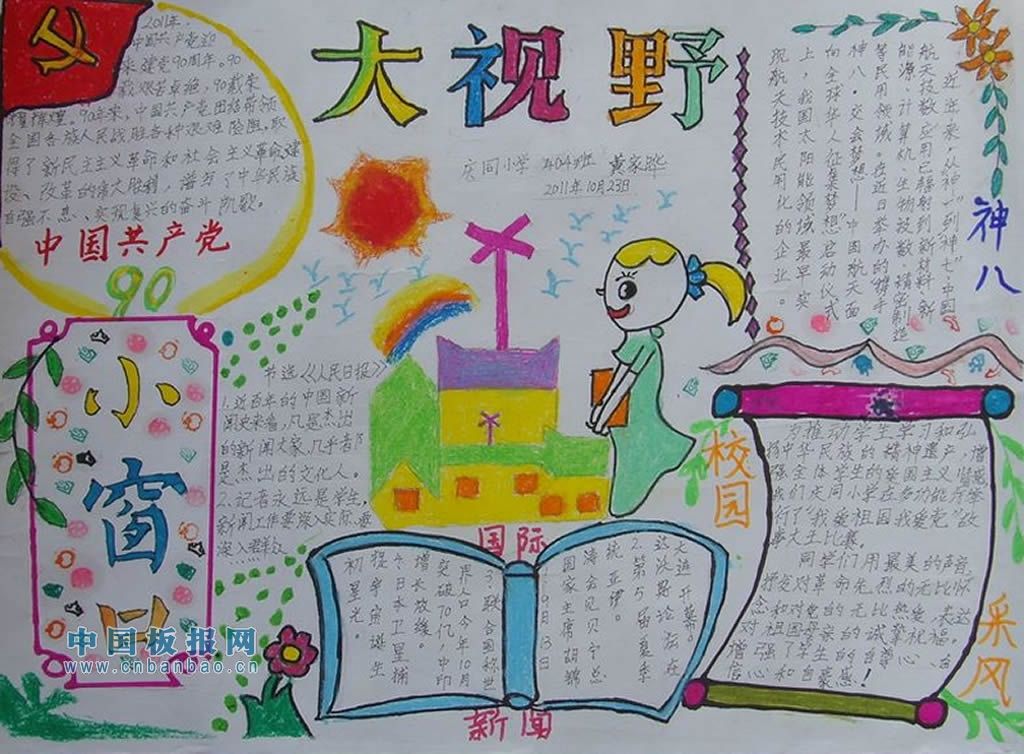 大视野
庆同小学 404班 黄家晔
2011年10月23日
2011年,
中国共产党迎
来建党90周年。90
载艰苦卓绝,90载荣
耀辉煌。90年来,中国共产党团结带领
全国各族人民战胜各种艰难险阻,取
得了新民主主义革命和社会主义革命建
设、改革的伟大胜利,谱写了中华民族
自强不息、实现复兴的奋斗凯歌。
中国共产党
90
小窗口
节选《人民日报》
1.近百年的中国新
闻史来看,凡是杰出
的新闻大家,几乎都
是杰出的文化人。
2.记者永远是学生,
新闻工作要深入实际,要
深入群众
神八
近年来,从“神一”到“神七”,中国
航天技术应用已辐射到新材料新
能源、计算机、生物 精密制造
等民用领域。在近日举办的“携手
神八·交会梦想——中国航天面
向全球华人征集梦想”启动仪式
上,我国太阳能领域最早实
现航天技术民用化的企业。
国际
新闻
9月13日
国家主席胡锦
涛会见贝宁总
统亚伊。
2.第5届夏季
达沃斯论坛在
大连开幕。
3.联合国称世
界人口今年10月
突破70亿,中印
增长放缓。
4.日本卫星捕
捉宇宙诞生
初星光。
校园
采风
为推动学生学习和弘
扬中华民族的精神遗产,增
强全体学生的爱国主义情感
我们庆同小学在多功能厅举
行了“我爱祖国我爱党”故
事大王比赛。
同学们用最美的声音,
抒发对革命先烈的无比怀
念和对党的无比热爱,表达
对祖国母亲的真诚祝福。
增强了学生的自尊心、自
信心和自豪感!
中国板报网
www.cnbanbao.cn